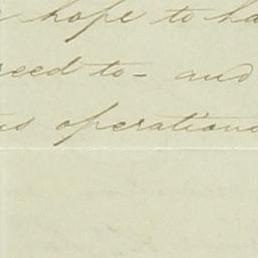 hope to ha
reed to - and
us operations